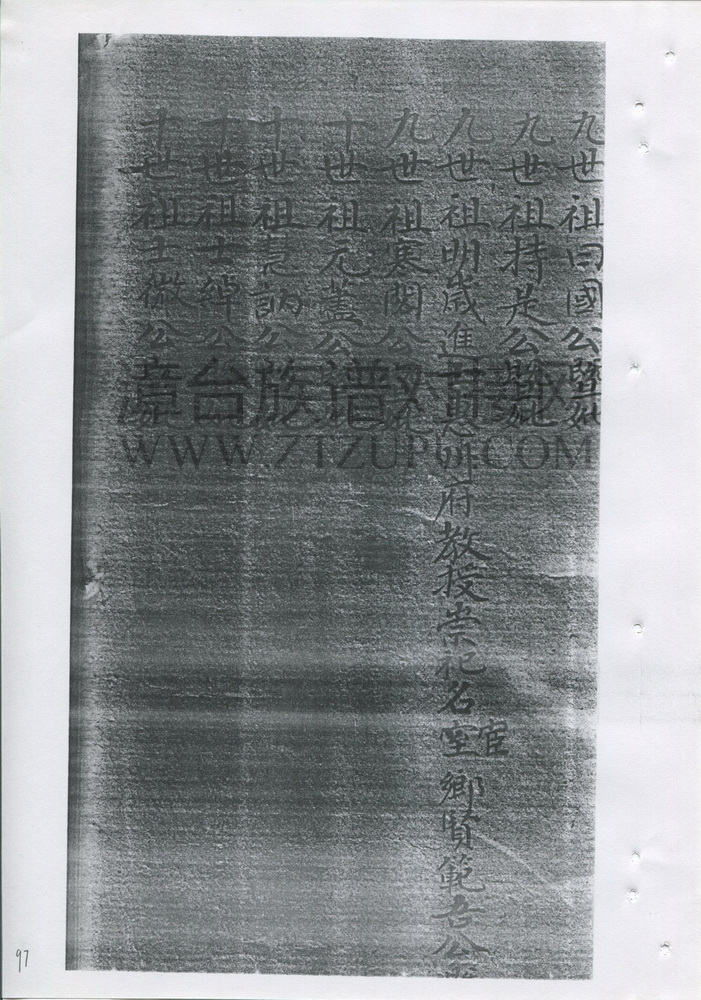 九世祖曰國公暨妣
九世祖持是公暨妣
九世祖明歲進士 府教授崇祀名宦室鄉賢範吾公
九世祖寒閣公
十世祖元藎公
十世祖 訥公
十世祖士綽公
十世祖士徵公
章台族谱对接网
WWW.ZTZUPU.COM
97